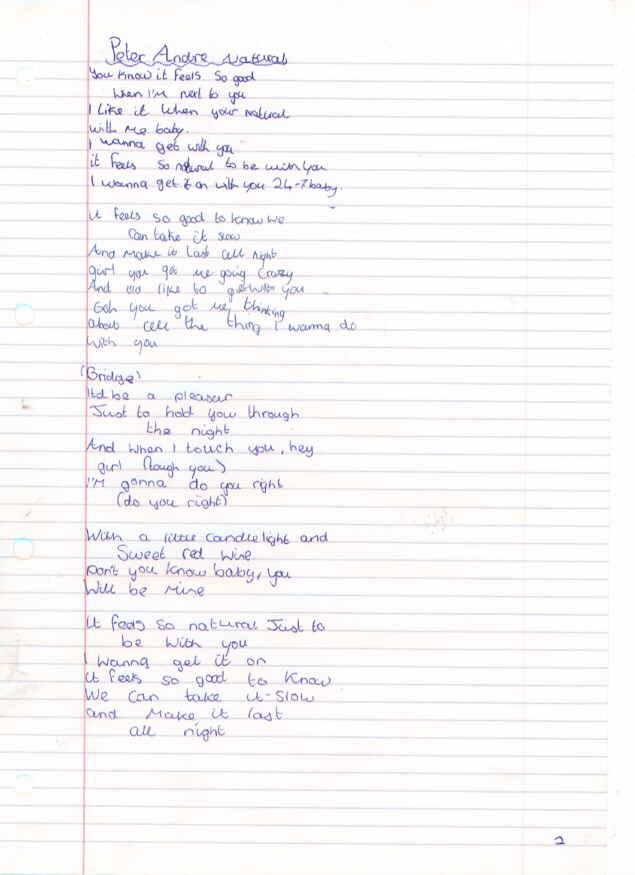 Peter Andre Natural
You know it feels so good
when I'm next to you
I like it when your natural
with me baby.
I wanna get with you
it feels so natural to be with you
I wanna get it on with you 24-7 baby.
it feels so good to know we
can take it slow
And make it last all night
girl you got me going crazy
And like to get with you
Ooh you got me thinking
about all the thing I wanna do
with you
(Bridge)
Itd be a pleasur
Just to hold you through
the night
And when I touch you, hey
girl (tough you)
I'm gonna do you right
(do you right)
With a little candle light and
Sweet red wine.
Don't you know baby, you
will be mine
it feels so natural Just to
be with you
I wanna get it on
it feels so good to know
we can take it slow
and make it last
all night
2